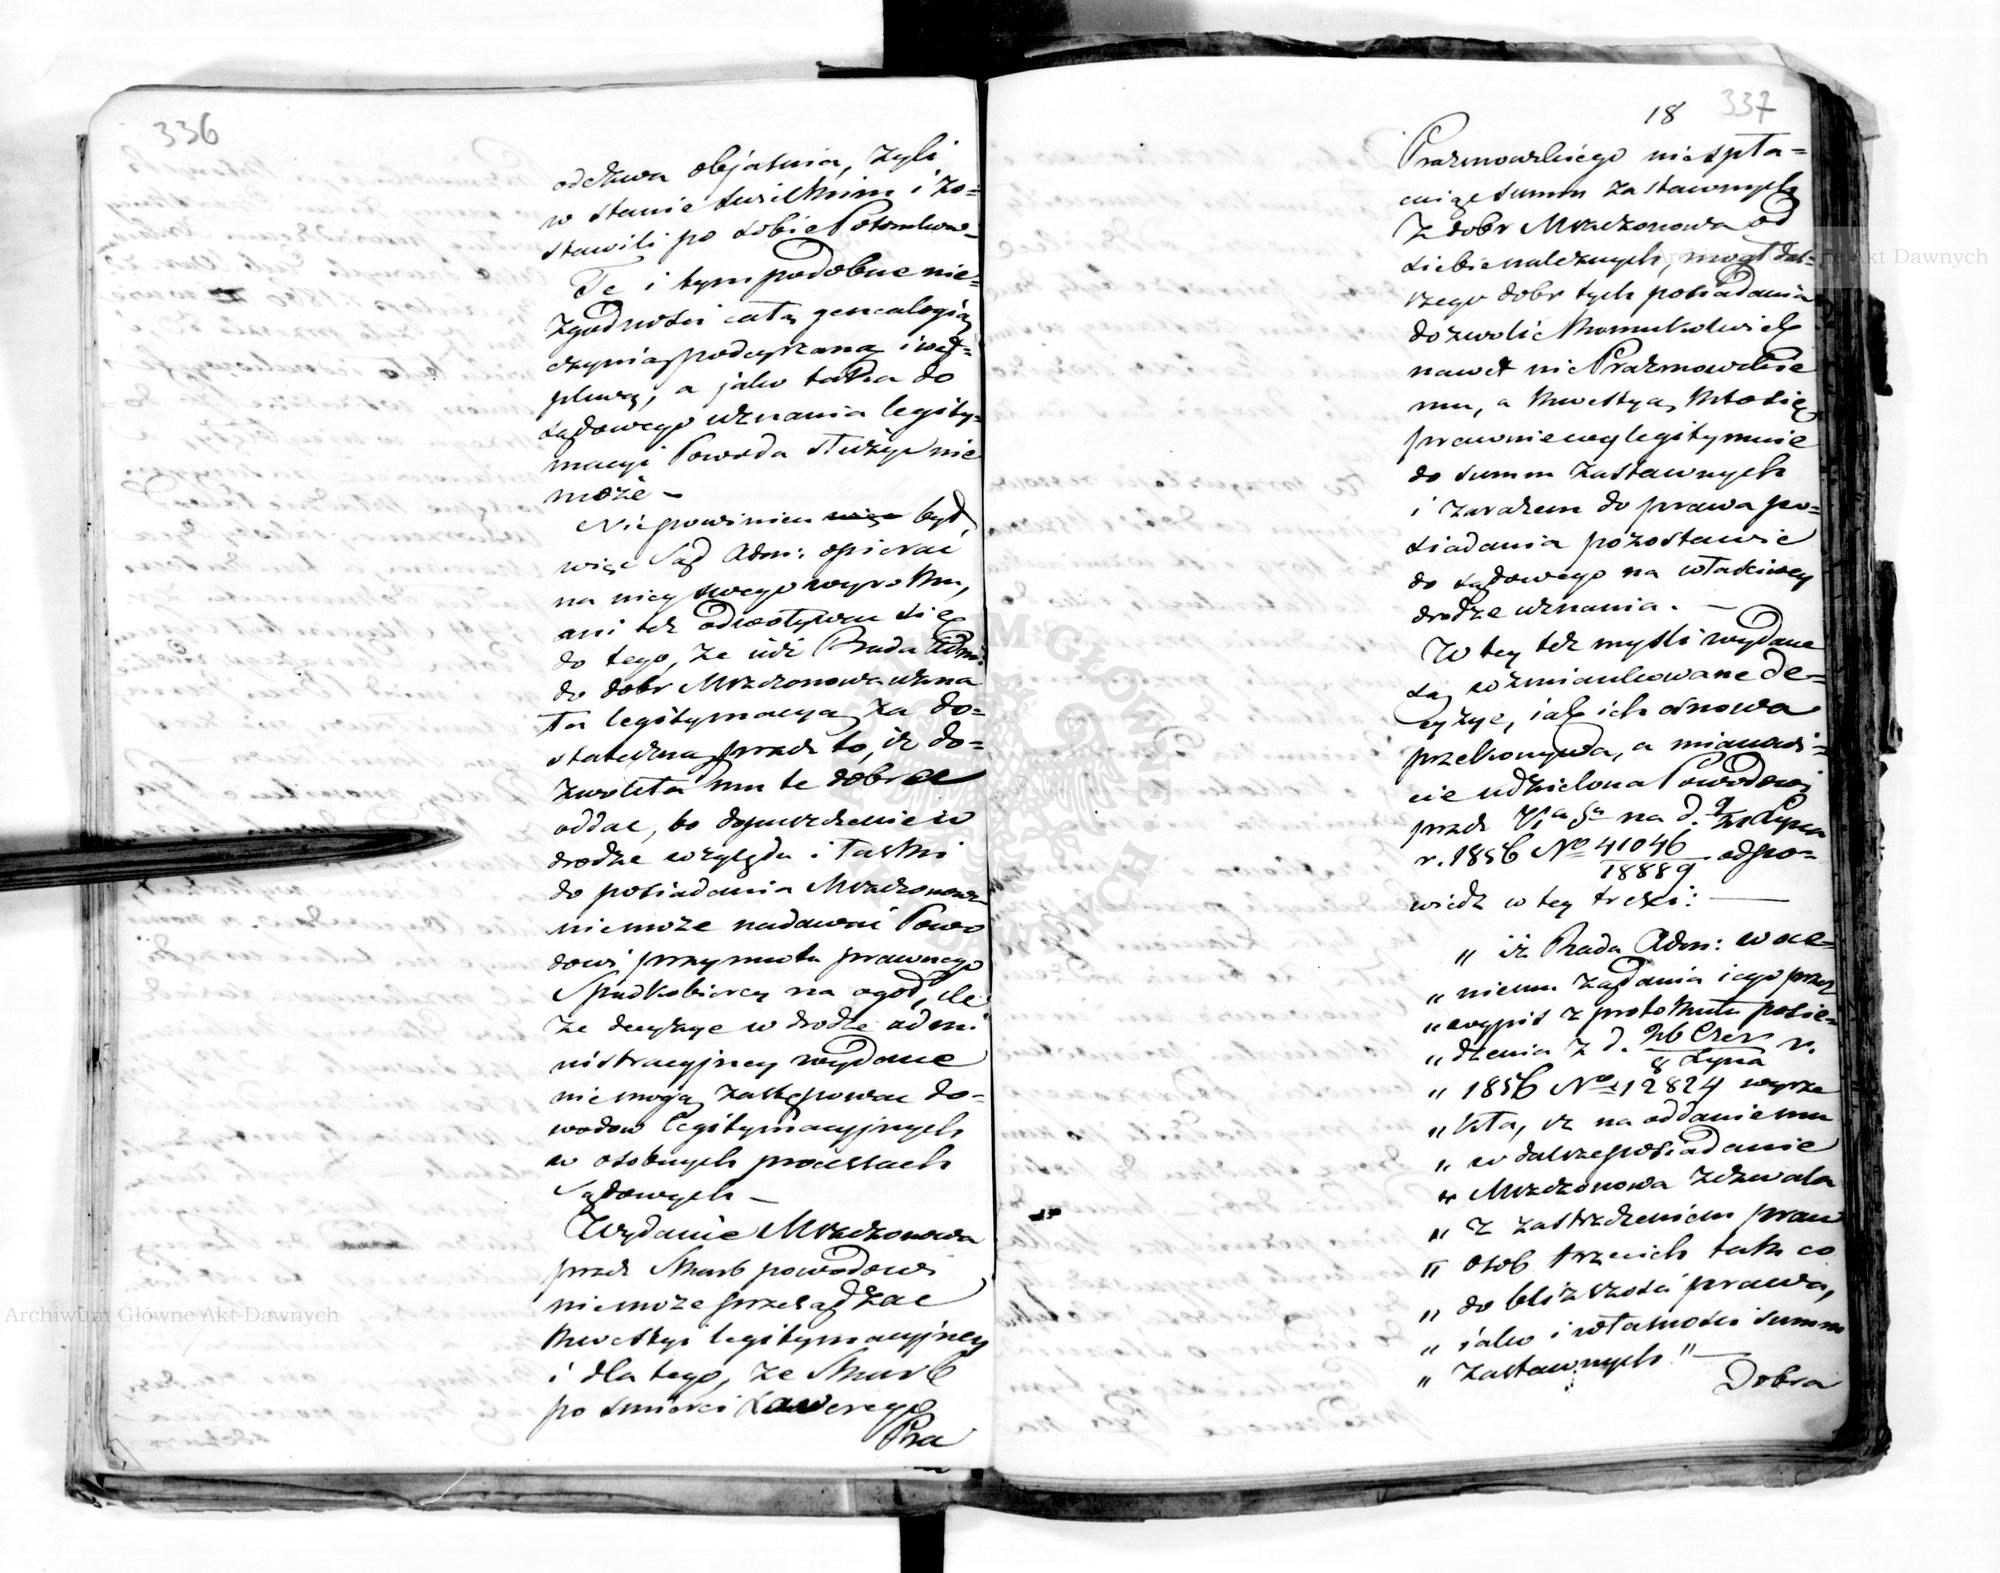 336
odezwa objaśnia, żyli
w stanie szlachskim i zo-
stawili po sobie Potomkow-
Te i tym podobne nie-
zgodności całą genealogią
czynią podeyrzaną i wąt-
pliwą, a jako taka do
sądowego uznania legity-
macyi Powoda służyć nie
może –
Nie powinien był
więc Sąd Adm: opierać
na niey swego wyroku,
ani też odwoływać się
do tego, że iuż Rada Adm:
do dobr Mszczonowa uzna
ła legitymacyą za do-
stateczną przez to, iż do-
zwoliła mu te dobra
oddać, bo dopuszczenie w
drodze względu i łaski
do posiadania Mszczonowa
nie może nadawać Powo
dowi przymiotu prawnego
Spadkobiercy na ogół, ile
że decyzye w drodze admi
nistracyjney wydane
nie mogą zastępować do-
wodow legitymacyjnych
w osobnych processach
Sądowych –
Wydanie Mszczonowa
przez Skarb powodowi
nie może przesądzać
kwestyi legitymacyjney
i dla tego, że Skarb
po śmierci Xawerego
Pra
18 337
Prazmowskiego nie spła-
ciwszy summ zastawnych
z dobr Mszczonowa od
siebie należnych, mogł dal-
szego dobr tych posiadania
dozwolić komukolwiek
nawet nie Prazmowskie
mu, a kwestyą kto się
prawnie wylegitymuie
do summ zastawnych
i zarazem do prawa po-
siadania pozostawić
do sądowego na właściwey
drodze uznania. –
W tey też myśli wydane
są wzmiankowane de-
cyzye, iak ich osnowa
przekonywa, a mianowi-
cie udzielona Powodowi
przez na d. Lipca
r. 1856 No 41046/18889 odpo-
wiedź w tey treści: –
„ iż Rada Adm: w oce-
„ nieniu żądania iego przez
„ wypis z protokułu posie-
„ dzenia z d. 26 Czer/8 Lipca r.
„ 1856 No 12824 wyrze
„ kła, iż na oddanie mu
„ w dalsze posiadanie
„ Mszczonowa zezwala
„ z zastrzeżeniem praw
„ osob trzecich tak co
„ do bliższości prawa,
„ iako i własności summ
„ zastawnych." –
Dobra
Archiwum Główne Akt Dawnych
Archiwum Główne Akt Dawnych
ARCHIWUM GŁÓWNE AKT DAWNYCH